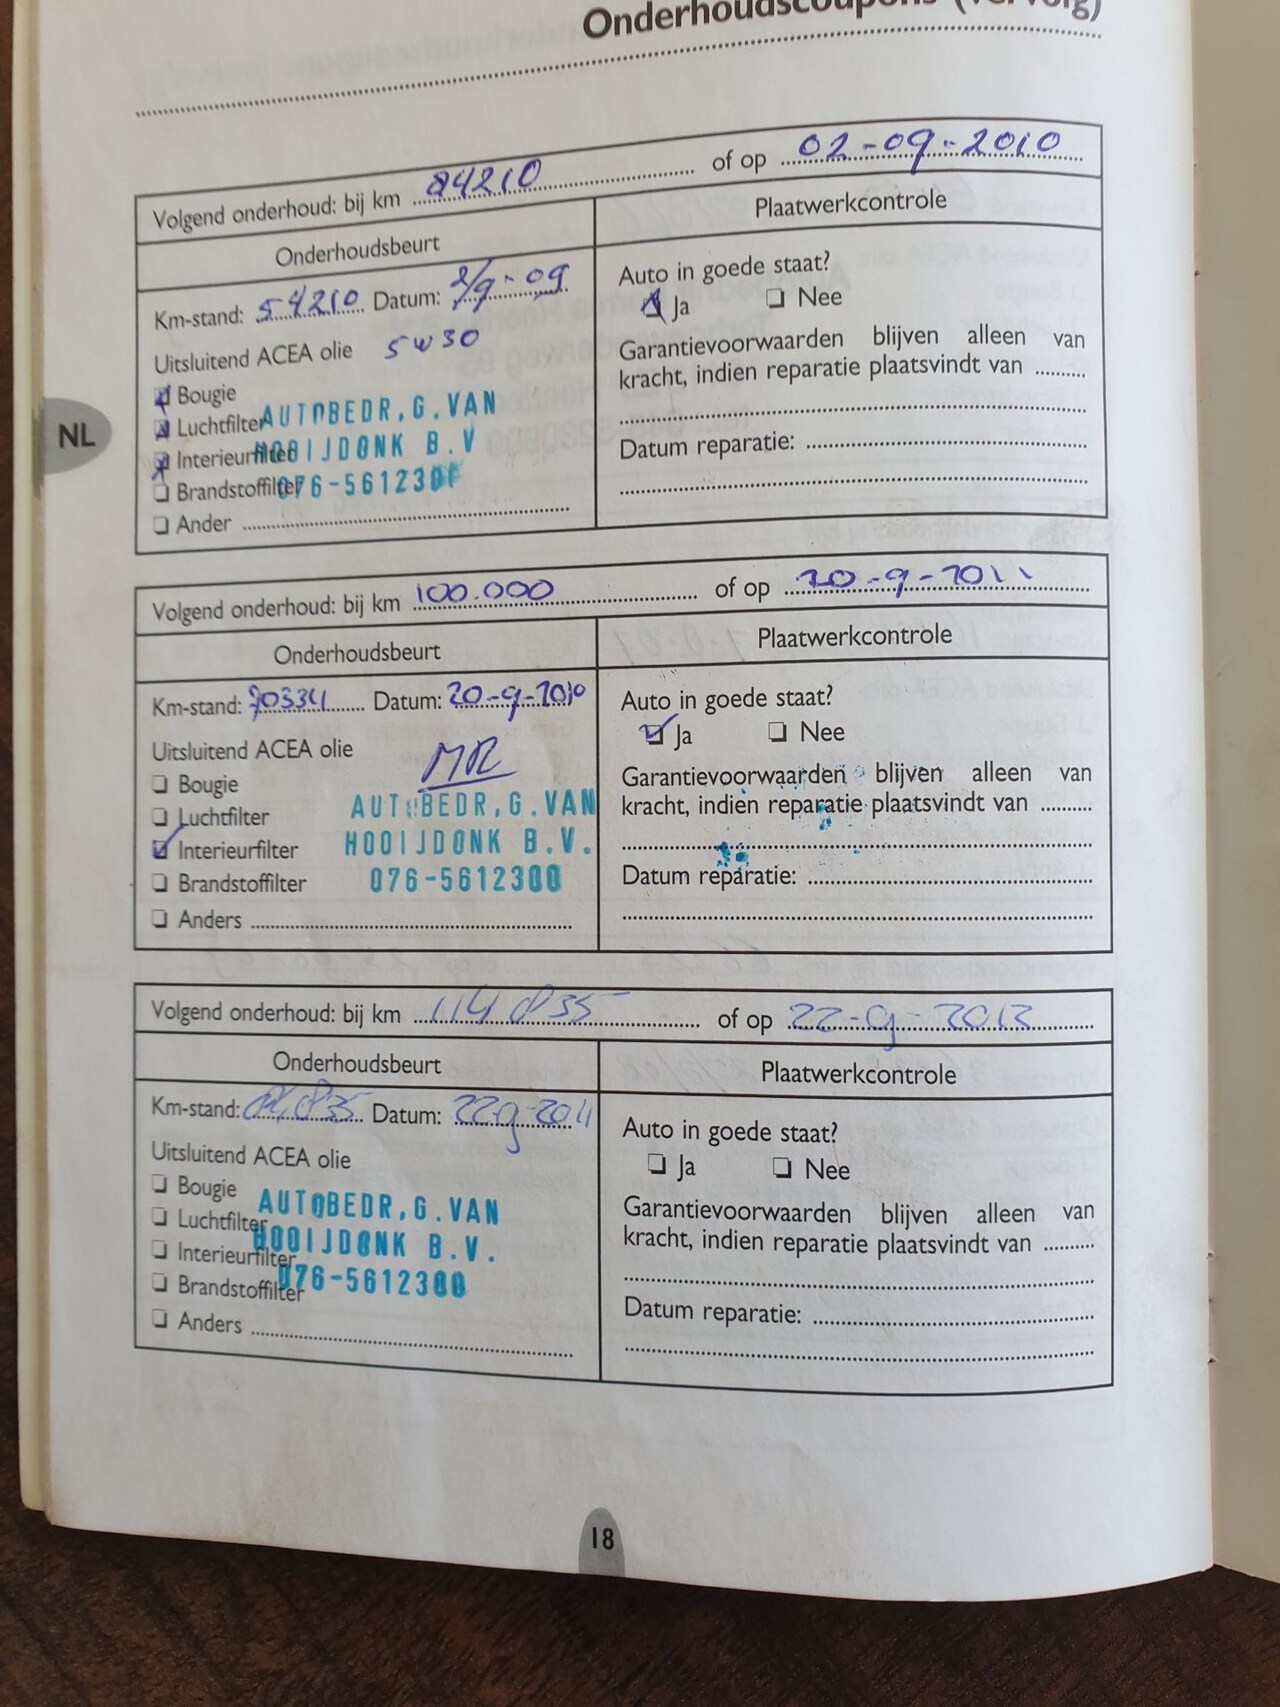 Onderhoudscoupons (vervolg)
Volgend onderhoud: bij km 84210 of op 02-09-2010
Onderhoudsbeurt
Plaatwerkcontrole
Km-stand: 54210 Datum: 2/9-09
Auto in goede staat?
Ja Nee
Uitsluitend ACEA olie 5w30
Garantievoorwaarden blijven alleen van
kracht, indien reparatie plaatsvindt van
Bougie
Luchtfilter
Interieurfilter
Brandstoffilter
Ander
AUTOBEDR, G. VAN
HOOIJDONK B.V
076-5612300
Datum reparatie:
NL
Volgend onderhoud: bij km 100.000 of op 20-9-2011
Onderhoudsbeurt
Plaatwerkcontrole
Km-stand: 70334 Datum: 20-9-2010
Auto in goede staat?
Ja Nee
Uitsluitend ACEA olie
MR
Garantievoorwaarden blijven alleen van
kracht, indien reparatie plaatsvindt van
Bougie
Luchtfilter
Interieurfilter
Brandstoffilter
Anders
AUTOBEDR, G. VAN
HOOIJDONK B.V.
076-5612300
Datum reparatie:
Volgend onderhoud: bij km of op 22-9-2013
Onderhoudsbeurt
Plaatwerkcontrole
Km-stand: Datum: 22-9-2011
Auto in goede staat?
Ja Nee
Uitsluitend ACEA olie
Garantievoorwaarden blijven alleen van
kracht, indien reparatie plaatsvindt van
Bougie
Luchtfilter
Interieurfilter
Brandstoffilter
Anders
AUTOBEDR, G. VAN
HOOIJDONK B.V.
076-5612300
Datum reparatie:
18